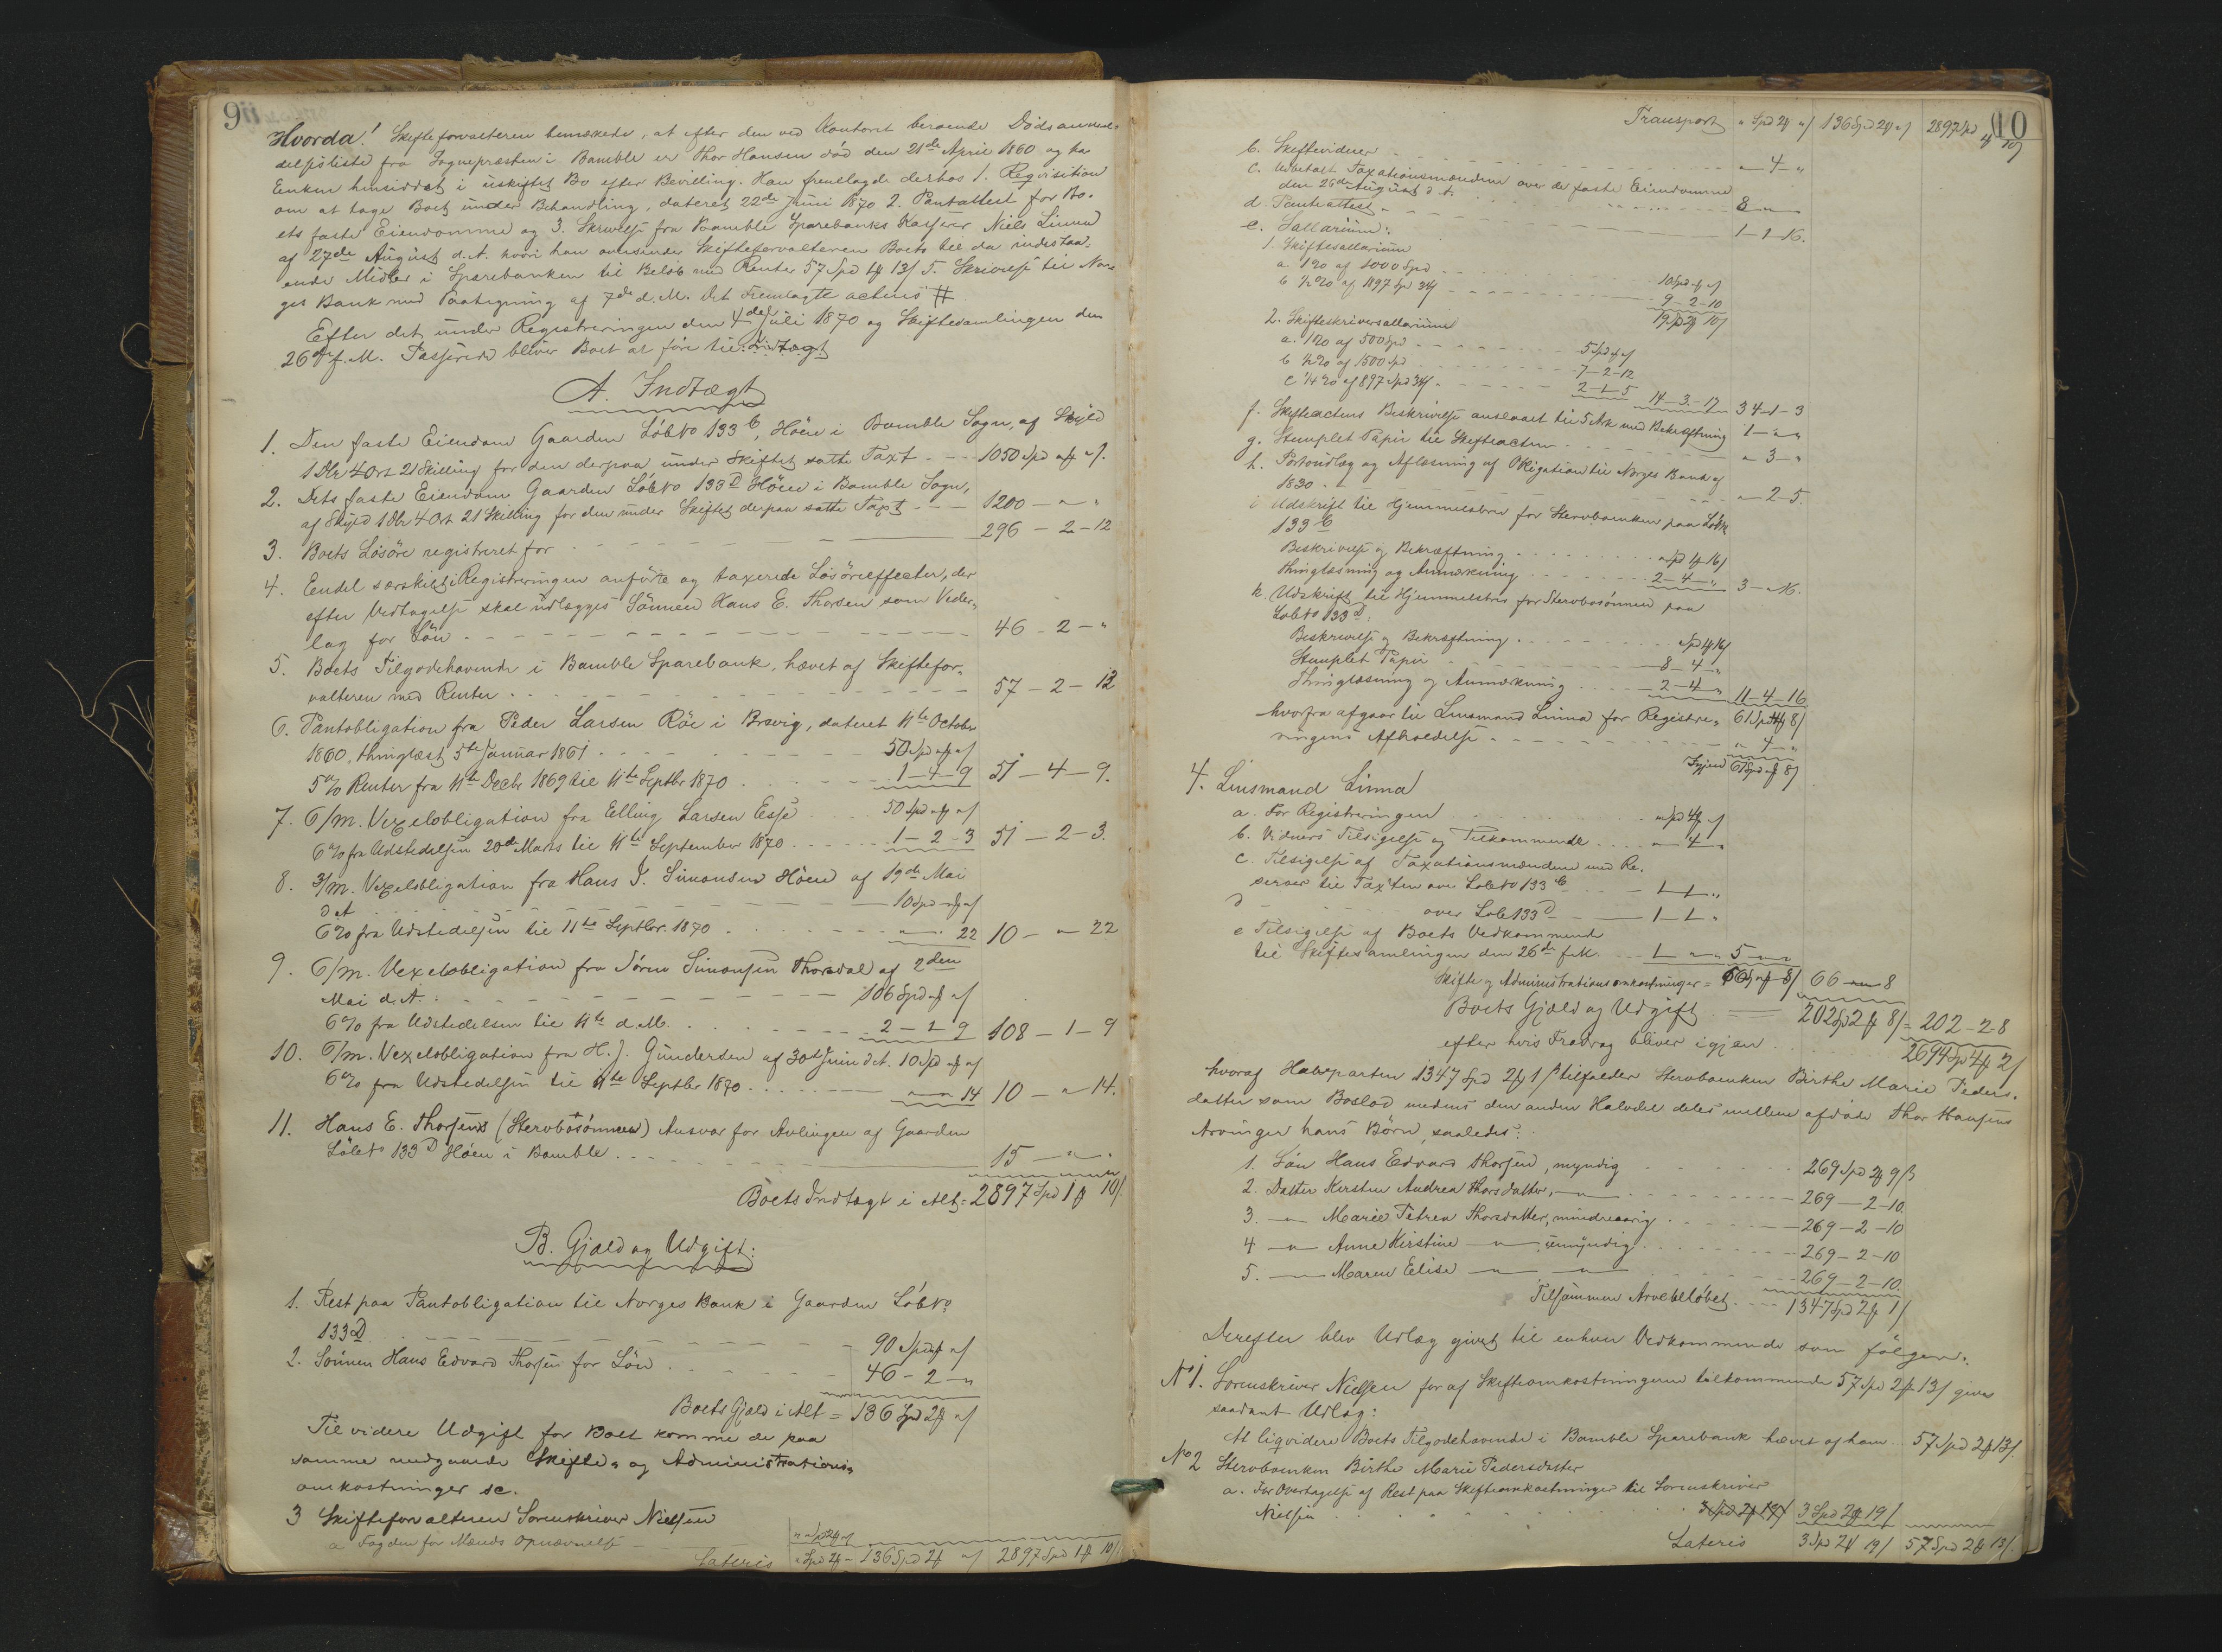 9
Hvorda! Skifteforvalteren bemærkede, at efter den ved Kontoret beroende Dødsanmel-
delsesliste fra Sognepræsten i Bamble er Thor Hansen død den 21de April 1860 og har
Enken hensiddet i uskiftet Bo efter Bevilling. Han fremlagde derhos 1. Reqvisition
om at tage Boet under Behandling, dateret 22de Juni 1870 2. Pantattest for Bo-
ets faste Eiendomme og 3. Skrivelse fra Bamble Sparebanks Kasserer Niels Linna
af 27de August d. A. hvori han oversender Skifteforvalteren Boets til da indestaa-
ende Midler i Sparebanken til Beløb med Renter 57 Spd 2 ß 13 / 5. Skrivelse til Nor-
ges Bank med Paategning af 7de d. M. Det Fremlagte acteres #
Efter det under Registreringen den 4de Juli 1870 og Skiftesamlingen den
26de f. M. Passerede bliver Boet at føre til Indtægt
A. Indtægt
1. Den faste Eiendom Gaarden Løbno 133b, Höen i Bamble Sogn, af Skyld
1 Dlr 4 Ort 21 Skilling for den derpaa under Skiftet satte Taxt - - - 1050 Spd " ß " /.
2. Dets faste Eiendom Gaarden Løbno 133D Höen i Bamble Sogn,
af Skyld 1 Dlr 4 Ort 21 Skilling for den under Skiftet derpaa satte Taxt - - - 1200 - " - "
3. Boets Løsøre registreret for - - - 296 - 2 - 12
4. Endel særskilt i Registreringen anførte og taxerede Løsøreeffecter, der
efter Vedtagelse skal udlægges Sønnen Hans E. Thorsen som Veder-
lag for Løn - - - 46 - 2 - "
5. Boets Tilgodehavende i Bamble Sparebank, hævet af Skiftefor-
valteren med Renter - - - 57 - 2 - 13
6. Pantobligation fra Peder Larsen Röe i Brevig, dateret 11te October
1860, thinglæst 5te Januar 1861 - - - 50 Spd " ß " /
5% Renter fra 11te Decbr 1869 til 11te Septbr 1870 - - - 1 - 4 - 9 51 - 4 - 9.
7. 6/m. Vexelobligation fra Elling Larsen Esse - - - 50 Spd " ß " /
6% fra Udstedelsen 20de Marts til 11te September 1870 - - - 1 - 2 - 3 51 - 2 - 3.
8. 3/m. Vexelobligation fra Hans J. Simonsen Höen af 19de Mai
d. A. - - - 10 Spd " ß " /
6% fra Udstedelsen til 11te Septbr. 1870 - - - " - " 22 10 - " 22
9. 6/m. Vexelobligation fra Sören Simonsen Thorsdal af 2den
Mai d. A. - - - 106 Spd " ß " /
6% fra Udstedelsen til 11te d. M. - - - 2 - 1 9 108 - 1 - 9
10. 6/m. Vexelobligation fra H. J. Gundersen af 30te Juni d. A. 10 Spd " ß " /
6% fra Udstedelsen til 11te Septbr 1870 - - - " - " 14 10 - " 14.
11. Hans E. Thorsens (Stervbosønnen) Ansvar for Avlingen af Gaarden
Løbno 133D Höen i Bamble - - - 15 - " - "
Boets Indtægt i Alt = 2897 Spd 1 ß 10 /.
B. Gjæld og Udgift:
1. Rest paa Pantobligation til Norges Bank i Gaarden Løbno
133D - - - 90 Spd " ß " /
2. Sønnen Hans Edvard Thorsen for Løn - - - 46 - 2 - "
Boets Gjæld i Alt = 136 Spd 2 ß " /
Til videre Udgift for Boet komme de paa
samme medgaaede Skifte- og Administrations-
omkostninger sc.
3 Skifteforvalteren Sorenskriver Nielsen
a Fogden for Mænds Opnævnelse - " Spd 2 ß " /
Lateris " Spd 2 ß - 136 Spd 2 ß " / 2897 Spd 1 ß 10 /.
10
Transport " Spd 2 ß " / 136 Spd 2 ß " / 2897 Spd 1 ß 10 /
b. Skiftevidner - - - " 4 - "
c. Udbetalt Taxationsmændene over de faste Eiendomme
den 26de August d. A. - - - 8 - " - "
d. Pantattest - - - 1 - 1 - 16.
e. Sallarium:
1. Skiftesallarium
a. 1% af 1000 Spd - - - 10 Spd " ß " /
b ½% af 1897 Spd 34 / - - - 9 - 2 - 10
19 Spd 2 ß 10 /
2. Skifteskriversallarium
a. 1% af 500 Spd - - - 5 Spd " ß " /
b ½% af 1500 Spd - - - 7 - 2 - 12
c ¼% af 897 Spd 34 / - - - 2 - 1 - 5 14 - 3 - 17 34 - 1 - 3
f. Skifteactens Beskrivelse anslaaet til 5 Ark med Bekræftning 1 - " - "
g. Stemplet Papir til Skifteacten - - - " 3 - "
h. Portoudlæg og Aflæsning af Obligation til Norges Bank af
1830 - - - " - 2 - 5.
i Udskrift til Hjemmelsbrev for Stervboenken paa Løbno
133b
Beskrivelse og Bekræftning - - - " Spd 1 ß 16 /
Thinglæsning og Anmærkning - - - 2 - 4 - " 3 - " 16.
k. Udskrift til Hjemmelsbrev for Stervbosønnen paa
Løbno 133D.
Beskrivelse og Bekræftning - - - " Spd 1 ß 16 /
Stemplet Papir - - - 8 - 4 - "
Thinglæsning og Anmærkning - - - 2 - 4 - " 11 - 4 - 16
hvorfra afgaar til Lensmand Linna for Registre- 61 Spd 4 ß 8 /
ringens Afholdelse - - - " 4 - "
Igjen 61 Spd " ß 8 /
4. Lensmand Linna
a. For Registreringen - - - " Spd 4 ß " /
b. Vidners Tilsigelse og Tilkommende - - - " 4 - "
c. Tilsigelse af Taxationsmændene med Re-
server til Taxten over Løbno 133b - - - 1 - 1 - "
d - over Løb 133D - - - 1 - 1 - "
e Tilsigelse af Boets Vedkommende
til Skiftesamlingen den 26de f. M. - - - 1 - " - " 5 - " - "
Skifte og Administrationsomkostninger = 66 Spd " ß 8 / 66 - " - 8
Boets Gjæld og Udgift - 202 Spd 2 ß 8 / = 202 - 2 - 8
efter hvis Fradrag bliver igjen - - - 2694 Spd 4 ß 2 /
hvoraf Halvparten 1347 Spd 2 ß 1 / tilfalder Stervboenken Birthe Marie Peders-
datter som Boslod medens den anden Halvdel deles mellem afdøde Thor Hansens
Arvinger hans Børn, saaledes:
1. Søn Hans Edvard Thorsen, myndig - - - 269 Spd 2 ß 9 /
2. Datter Kirsten Andrea Thorsdatter, - " - - - - 269 - 2 - 10.
3. - " - Marie Petrea Thorsdatter, mindreaarig - - - 269 - 2 - 10
4 - " - Anne Kirstine - " - umyndig - - - 269 - 2 - 10
5. - " - Maren Elise - " - - " - - - - 269 - 2 - 10.
Tilsammen Arvebeløbet - - - 1347 Spd 2 ß 1 /
Derefter blev Udlæg givet til enhver Vedkommende som følger:
No 1. Sorenskriver Nielsen for af Skifteomkostningerne tilkommende 57 Spd 2 ß 13 / gives
saadant Udlæg:
At liqvidere Boets Tilgodehavende i Bamble Sparebank hævet af ham - 57 Spd 2 ß 13 /.
No 2 Stervboenken Birthe Marie Pedersdatter
a. For Overtagelse af Rest paa Skifteomkostninger til Sorenskriver
Nielsen - - - 3 Spd 2 ß 19 / 3 Spd 2 ß 19 /
Lateris 3 Spd 2 ß 19 / 57 Spd 2 ß 13 /.